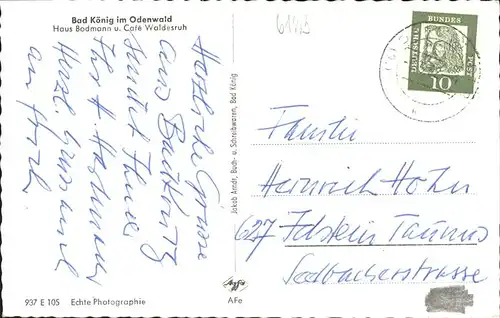 Bad König im Odenwald
Haus Bodmann u. Café Waldesruh
Herzliche Grüsse
aus Bad König
sendet Ihnen
Ihr H.
Herzl. Grüsse
937 E 105 Echte Photographie
Jakob Arndt, Buch- u. Schreibwaren, Bad König
Agfa
AFe
DEUTSCHE BUNDESPOST
10
Familie
Heinrich Hohn
627 Idstein Taunus
Seelbacherstrasse